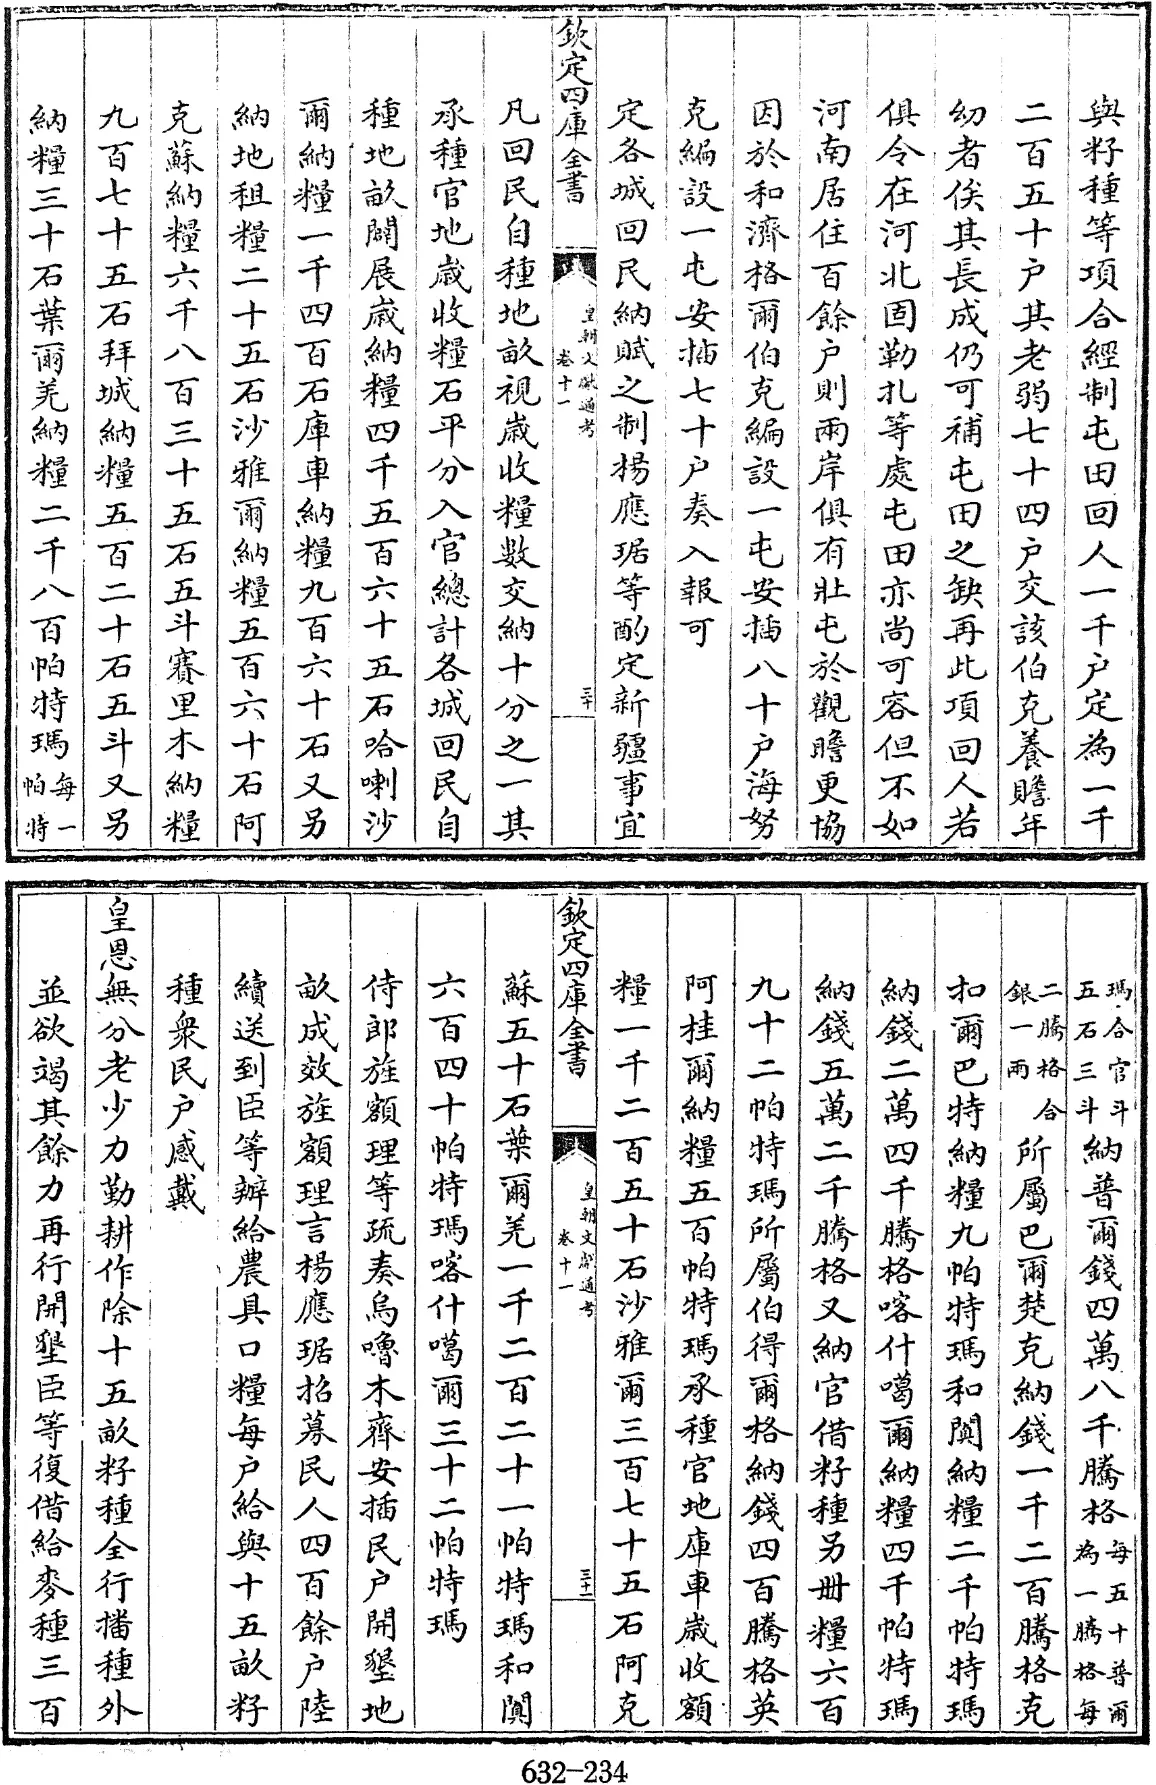 與籽種等項合經制屯田回人一千戶定為一千
二百五十戶其老弱七十四戶交該伯克養贍年
幼者俟其長成仍可補屯田之缺再此項回人若
俱令在河北固勒扎等處屯田亦尚可容但不如
河南居住百餘戶則兩岸俱有壯屯於觀瞻更協
因於和濟格爾伯克編設一屯安插八十戶海努
克編設一屯安插七十戶奏入報可
定各城回民納賦之制楊應琚等酌定新疆事宜
欽定四庫全書
皇朝文獻通考
卷十一
三十
凡回民自種地畝視歲收糧數交納十分之一其
承種官地歲收糧石平分入官總計各城回民自
種地畝闢展歲納糧四千五百六十五石哈喇沙
爾納糧一千四百石庫車納糧九百六十石又另
納地租糧二十五石沙雅爾納糧五百六十石阿
克蘇納糧六千八百三十五石五斗賽里木納糧
九百七十五石拜城納糧五百二十石五斗又另
納糧三十石葉爾羌納糧二千八百帕特瑪每一
帕特
瑪合官斗
五石三斗納普爾錢四萬八千騰格每五十普爾
為一騰格每
二騰格合
銀一兩所屬巴爾楚克納錢一千二百騰格克
扣爾巴特納糧九帕特瑪和闐納糧二千帕特瑪
納錢二萬四千騰格喀什噶爾納糧四千帕特瑪
納錢五萬二千騰格又納官借籽種另冊糧六百
九十二帕特瑪所屬伯得爾格納錢四百騰格英
阿桂爾納糧五百帕特瑪承種官地庫車歲收額
糧一千二百五十石沙雅爾三百七十五石阿克
欽定四庫全書
皇朝文獻通考
卷十一
三十一
蘇五十石葉爾羌一千二百二十一帕特瑪和闐
六百四十帕特瑪喀什噶爾三十二帕特瑪
侍郎旌額理等疏奏烏嚕木齊安插民戶開墾地
畝成效旌額理言楊應琚招募民人四百餘戶陸
續送到臣等辦給農具口糧每戶給與十五畝籽
種衆民戶感戴
皇恩無分老少力勤耕作除十五畝籽種全行播種外
並欲竭其餘力再行開墾臣等復借給麥種三百
632-234